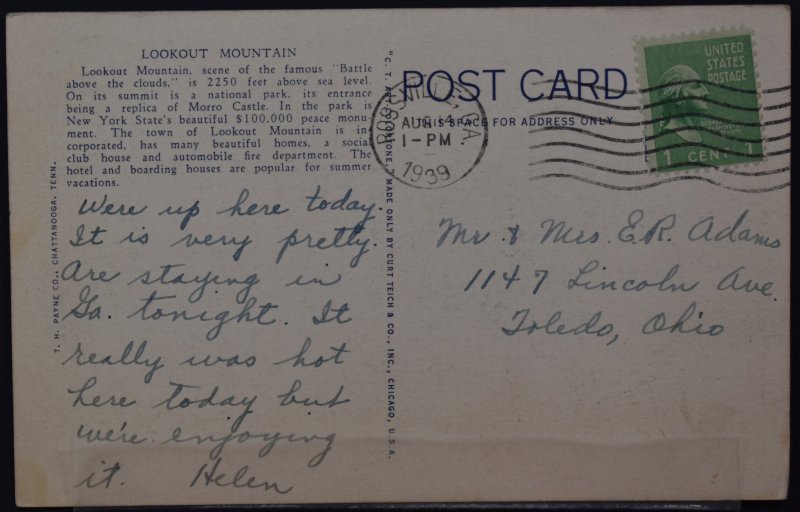 LOOKOUT MOUNTAIN
Lookout Mountain, scene of the famous "Battle
above the clouds," is 2250 feet above sea level.
On its summit is a national park, its entrance
being a replica of Morro Castle. In the park is
New York State's beautiful $100,000 peace monu-
ment. The town of Lookout Mountain is in-
corporated, has many beautiful homes, a social
club house and automobile fire department. The
hotel and boarding houses are popular for summer
vacations.
T. H. PAYNE CO., CHATTANOOGA, TENN.
Were up here today.
It is very pretty.
Are staying in
Ga. tonight. It
really was hot
here today but
we're enjoying
it. Helen
"C. T. ART-COLORTONE" MADE ONLY BY CURT TEICH & CO., INC., CHICAGO, U.S.A.
POST CARD
THIS SPACE FOR ADDRESS ONLY
ROSSVILLE, GA.
AUG 14
1-PM
1939
UNITED
STATES
POSTAGE
1 CENT 1
Mr. & Mrs. E.R. Adams
1147 Lincoln Ave.
Toledo, Ohio